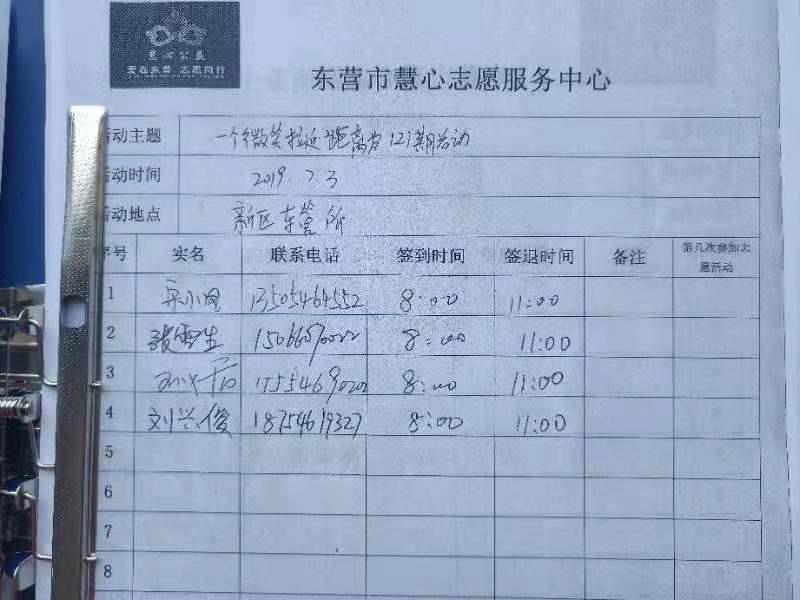 慧心公益
爱在东营 志愿同行
东营市慧心志愿服务中心
活动主题 一个微笑拉近距离为121期活动
活动时间 2019.7.3
活动地点 新区东营所
序号 实名 联系电话 签到时间 签退时间 备注 第几次参加志愿活动
1 8:00 11:00
2 张雪生 8:00 11:00
3 8:00 11:00
4 刘兴俊 18754619327 8:00 11:00
5
6
7
8